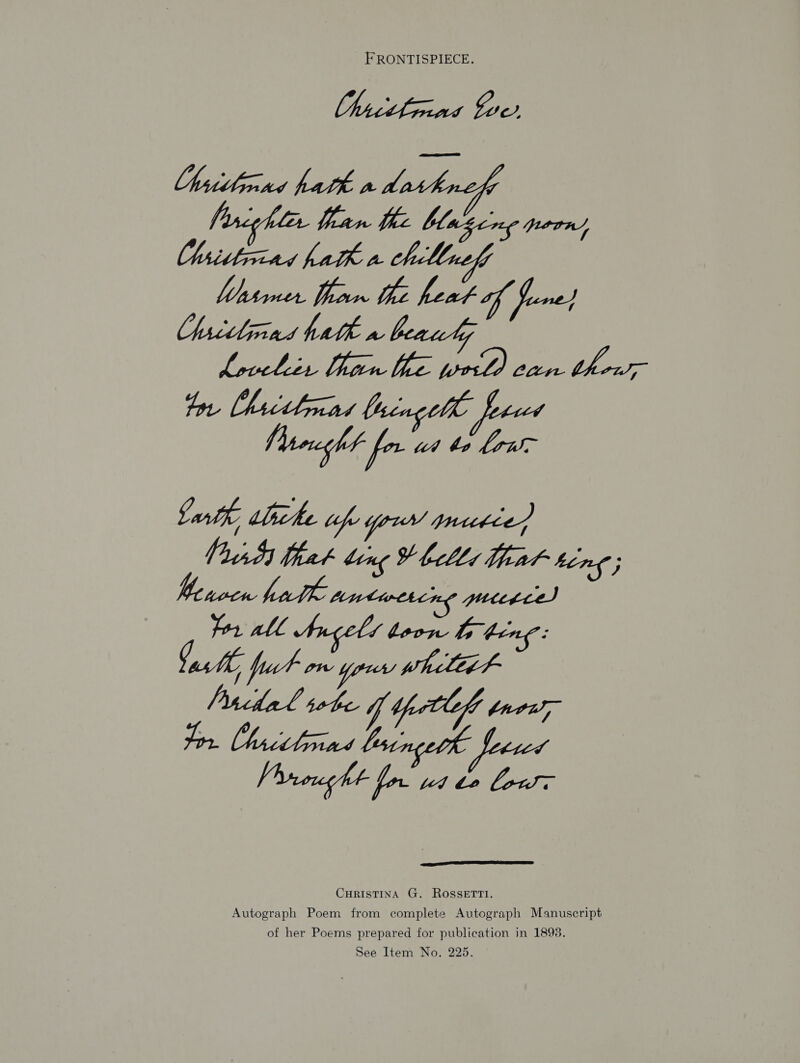 FRONTISPIECE.
Christmas Eve.
Christmas hath a darkness
Brighter than the blazing noon,
Christmas hath a chillness
Warmer than the heat of June,
Christmas hath a beauty
Lovelier than the world can show,
For Christmas bringeth Jesus
Brought for us so low.
Earth, strike up your music,
Birds that sing & bells that ring;
Heaven hath answering music
For all Angels soon to sing:
Earth, put on your whitest
Bridal robe of spotless snow,
For Christmas bringeth Jesus
Brought for us so low.
CHRISTINA G. ROSSETTI.
Autograph Poem from complete Autograph Manuscript
of her Poems prepared for publication in 1893.
See Item No. 225.